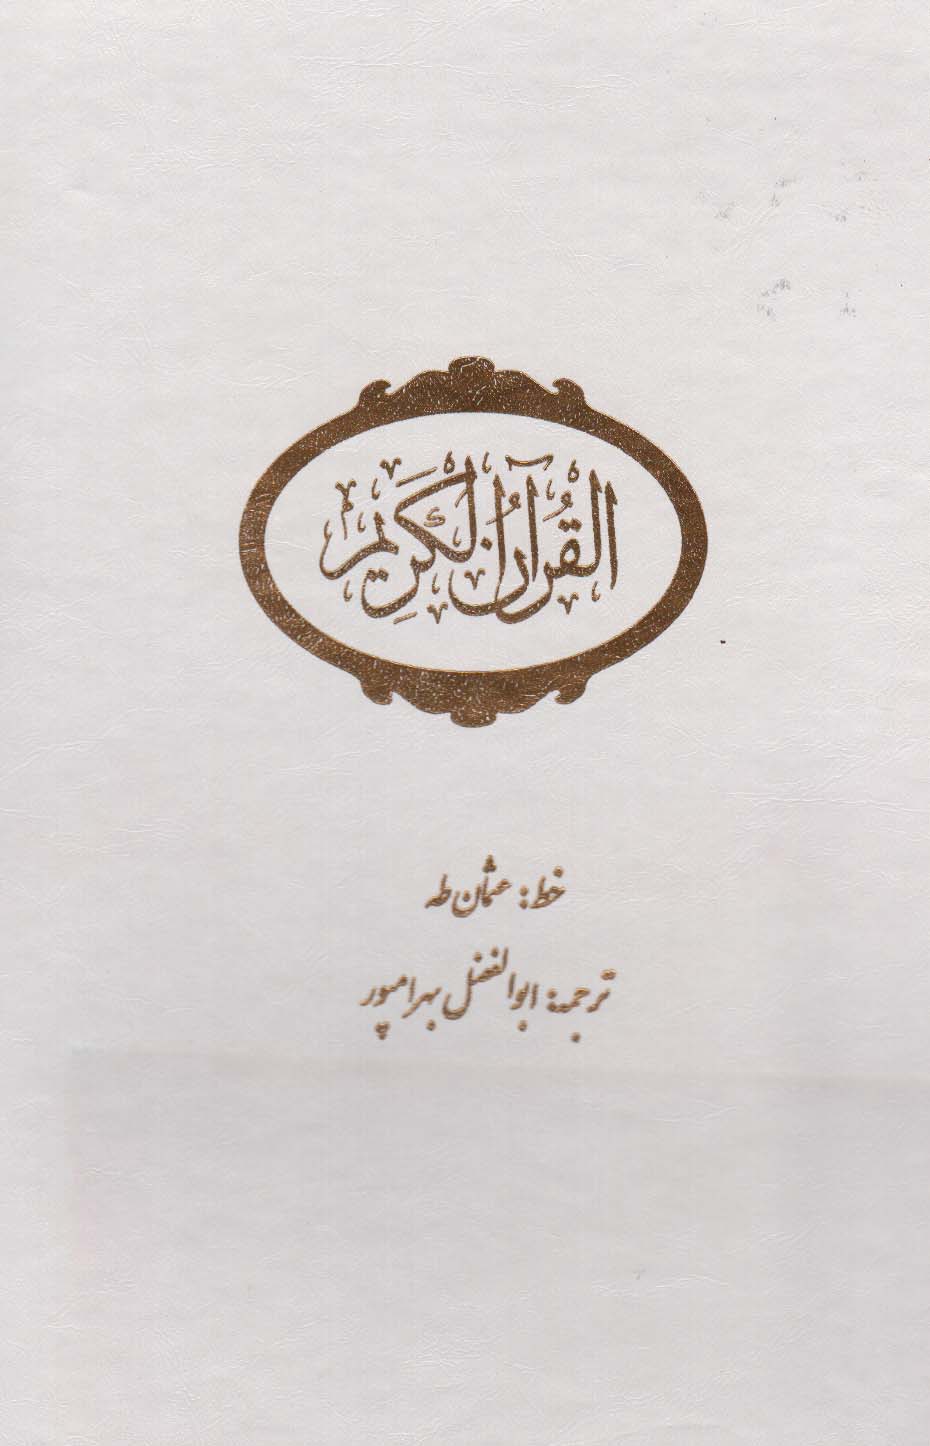 القُرآنُ الكَرِيم
خط: عثمان طه
ترجمه: ابوالفضل بهرامپور